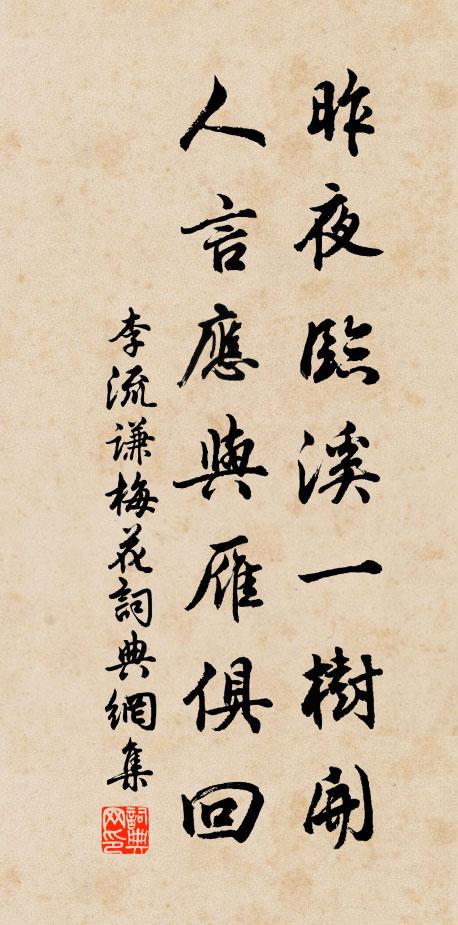 昨夜臨溪一樹開
人言應與雁俱回
李流謙梅花詞典網集
詞典網印